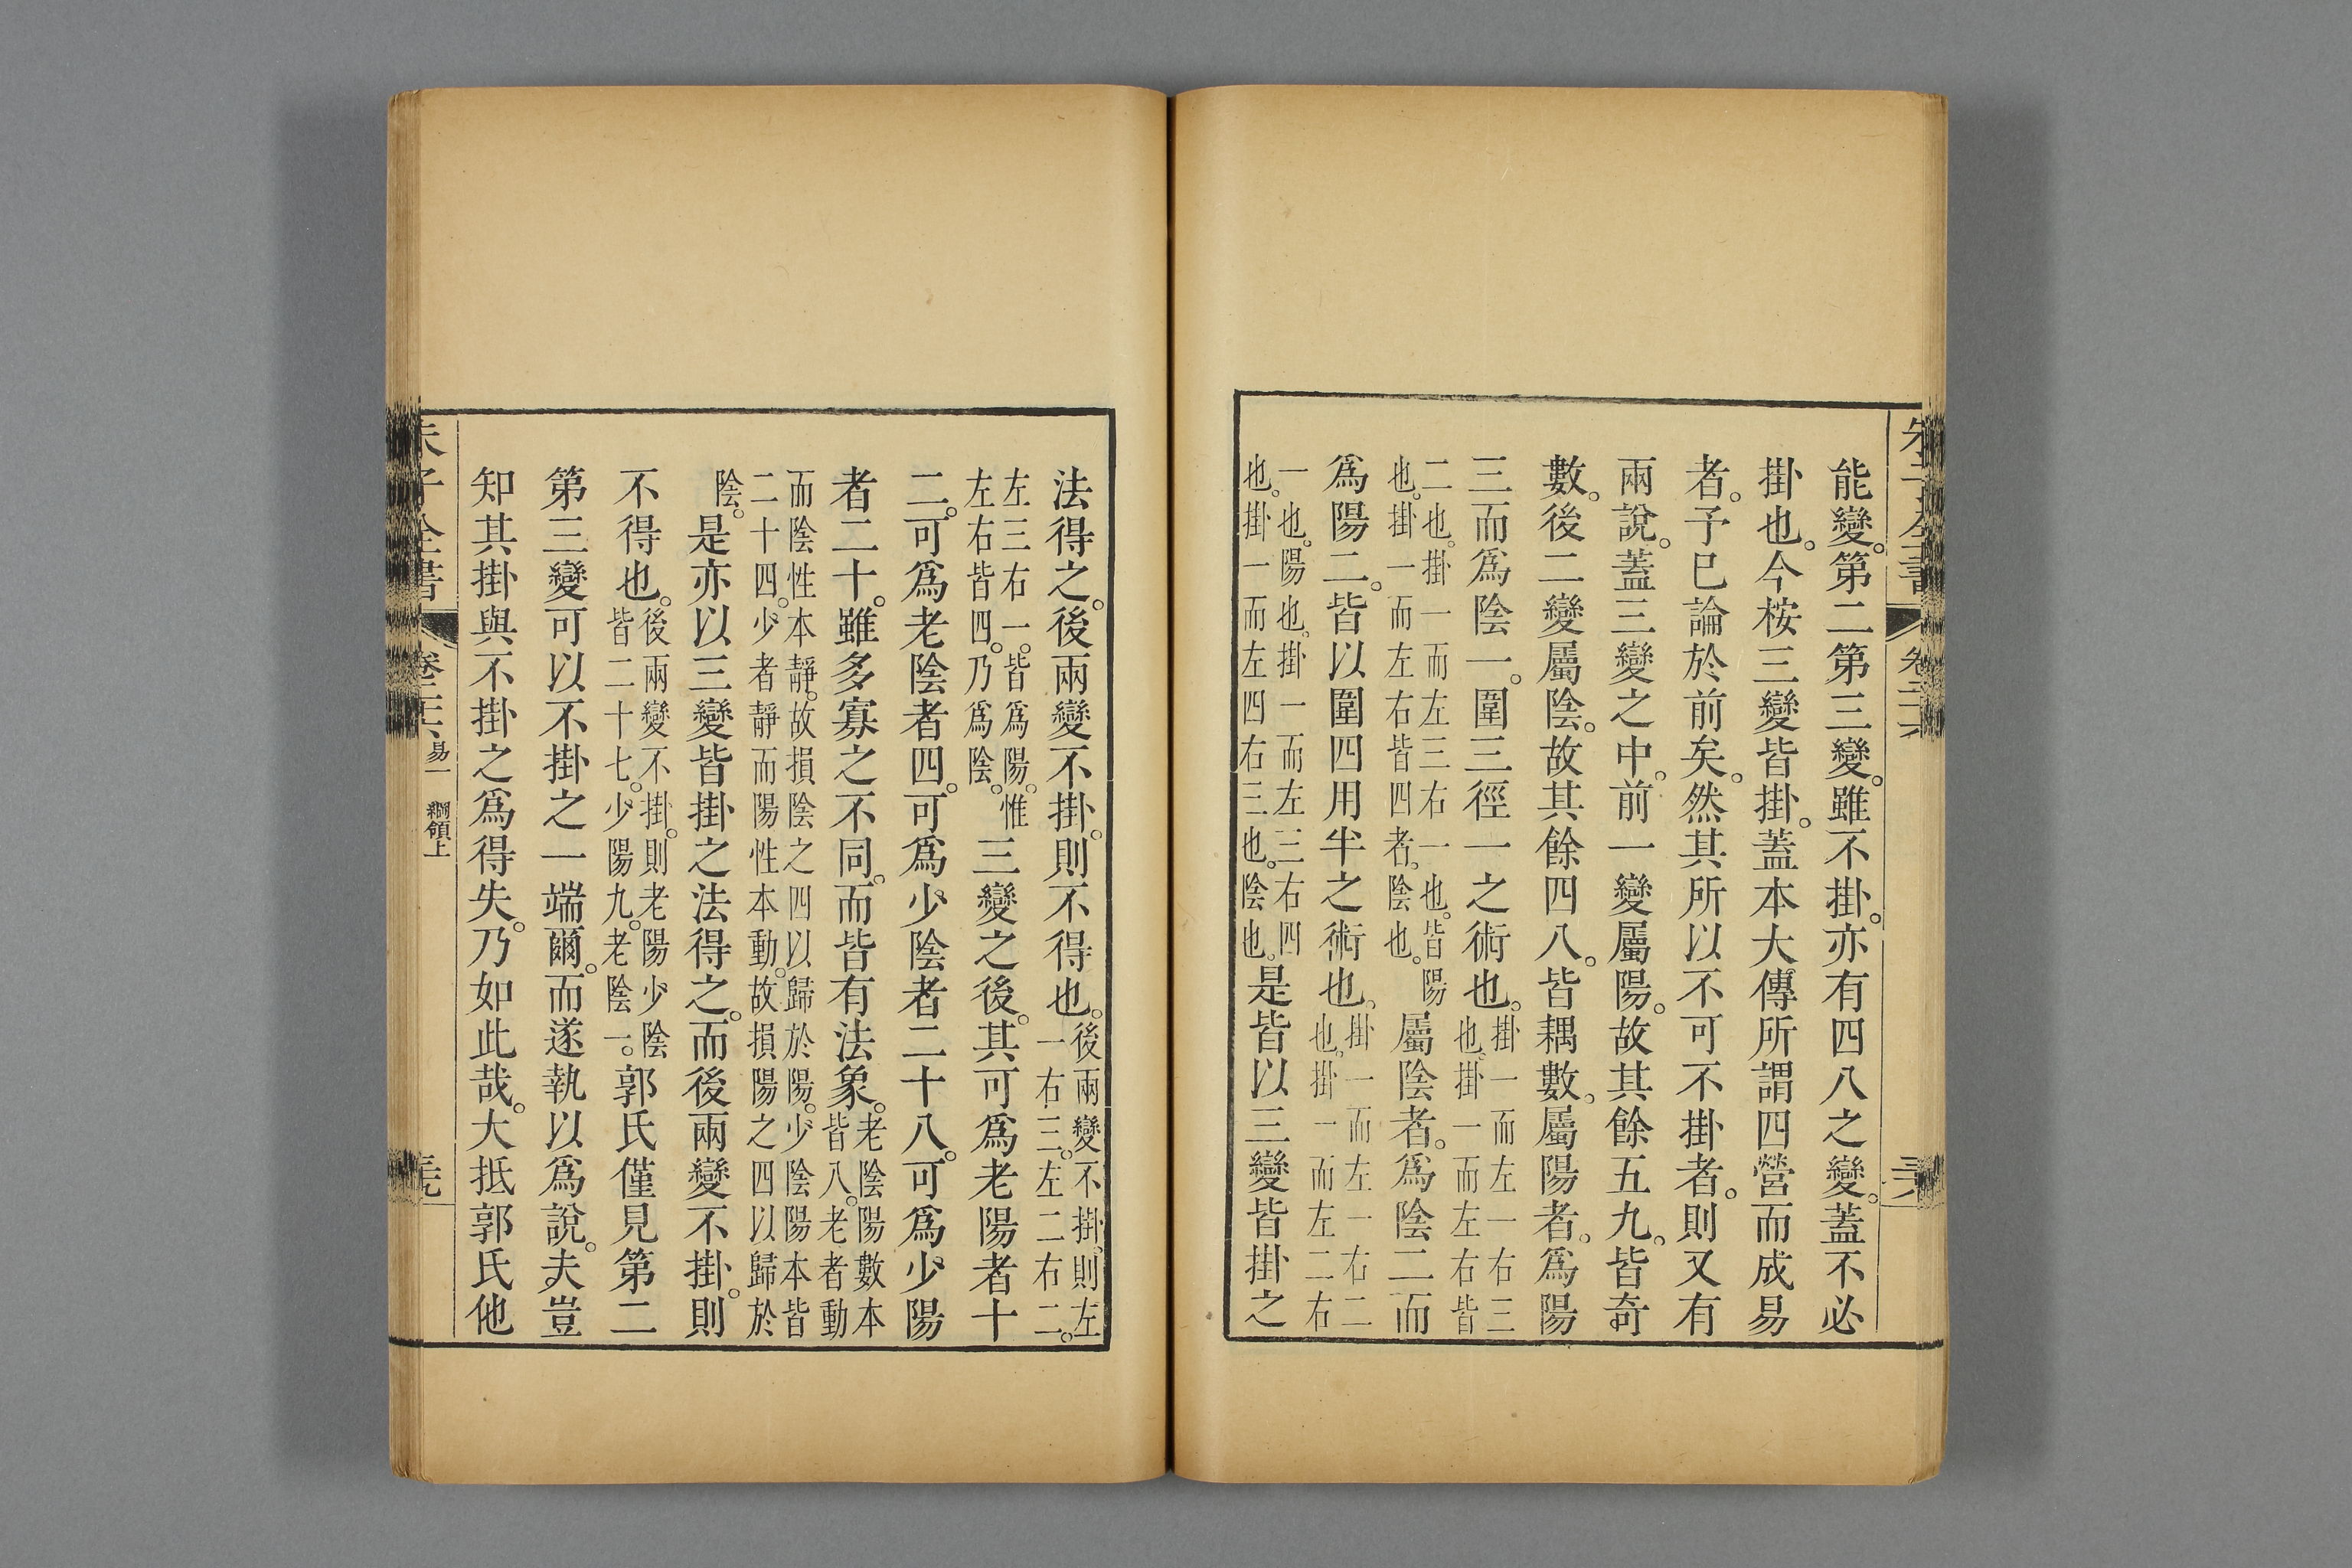 朱子全書 卷二十六
能變。第二第三變。雖不掛。亦有四八之變。蓋不必
掛也。今桉三變皆掛。蓋本大傳所謂四營而成易
者。予已論於前矣。然其所以不可不掛者。則又有
兩說。蓋三變之中。前一變屬陽。故其餘五九。皆奇
數。後二變屬陰。故其餘四八。皆耦數。屬陽者。爲陽
三而爲陰一。圍三徑一之術也。掛一而左一右三也。掛一而左右皆
二也。掛一而左三右一也。皆陽也。掛一而左右皆四者。陰也。屬陰者。爲陰二而
爲陽二。皆以圍四用半之術也。掛一而左一右二也。掛一而左二右
一也。陽也。掛一而左三右四也。掛一而左四右三也。陰也。是皆以三變皆掛之
法得之。後兩變不掛。則不得也。後兩變不掛。則左一右三。左二右二。
左三右一。皆爲陽。惟左右皆四。乃爲陰。三變之後。其可爲老陽者十
二。可爲老陰者四。可爲少陰者二十八。可爲少陽
者二十。雖多寡之不同。而皆有法象。老陰陽數本皆八。老者動
而陰性本靜。故損陰之四以歸於陽。少陰陽本皆二十四。少者靜而陽性本動。故損陽之四以歸於
陰。是亦以三變皆掛之法得之。而後兩變不掛。則
不得也。後兩變不掛。則老陽少陰皆二十七。少陽九。老陰一。郭氏僅見第二
第三變可以不掛之一端爾。而遂執以爲說。夫豈
知其掛與不掛之爲得失。乃如此哉。大抵郭氏他
朱子全書 卷二十六 易一 綱領上